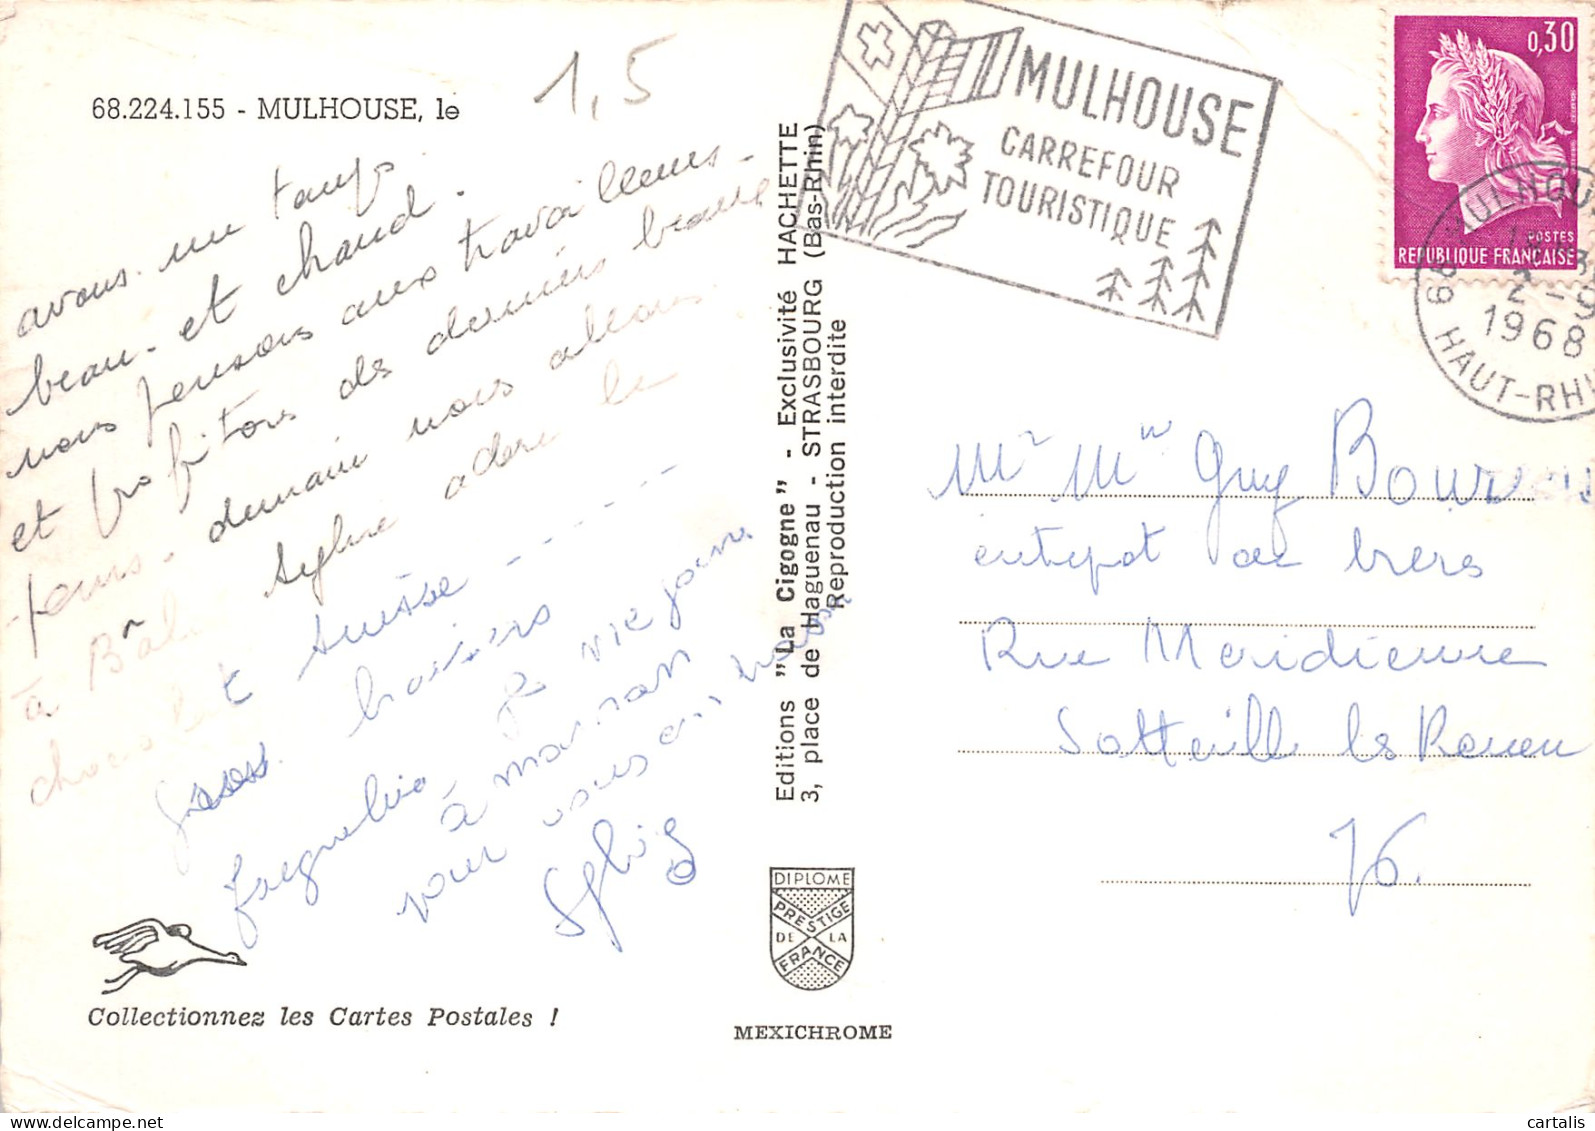 68.224.155 - MULHOUSE, le
1,5
avons un temps
beau et chaud.
nous pensons aux travailleurs -
et profitons des derniers beaux
jours - demain nous allons
à Bâle
Sylvie adore le
chocolat suisse ------
baisers
Jacqueline
à maman
pour vous
Sylvie
Collectionnez les Cartes Postales !
Editions "La Cigogne" - Exclusivité HACHETTE
3, place de Haguenau - STRASBOURG (Bas-Rhin)
Reproduction interdite
DIPLOME
PRESTIGE
DE LA
FRANCE
MEXICHROME
MULHOUSE
CARREFOUR
TOURISTIQUE
0,30
POSTES
REPUBLIQUE FRANÇAISE
68 MULHOUSE
2-9
1968
HAUT-RHIN
Mr Mme Guy
entrepot de bières
Rue Meridienne
Sotteville les Rouen
76.
delcampe.net
cartalis